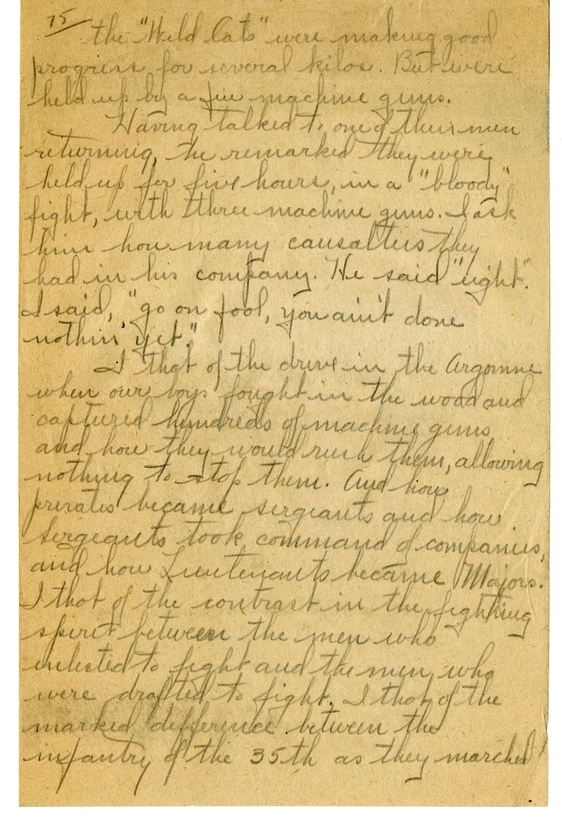 75
the "Wild Cats" were making good
progress for several kilos. But were
held up by a few machine guns.
Having talked to one of their men
returning, he remarked they were
held up for five hours, in a "bloody"
fight, with three machine guns. I ask
him how many causalties they
had in his company. He said "eight".
I said, "go on fool, you ain't done
nothin' yet."
I that of the drive in the Argonne
when our boys fought in the wood and
captured hundreds of machine guns
and how they would rush them, allowing
nothing to stop them. And how
privates became sergeants and how
sergeants took command of companies,
and how Lieutenants became Majors.
I that of the contrast in the fighting
spirit between the men who
enlisted to fight and the men who
were drafted to fight. I that of the
marked difference between the
infantry of the 35th as they marched